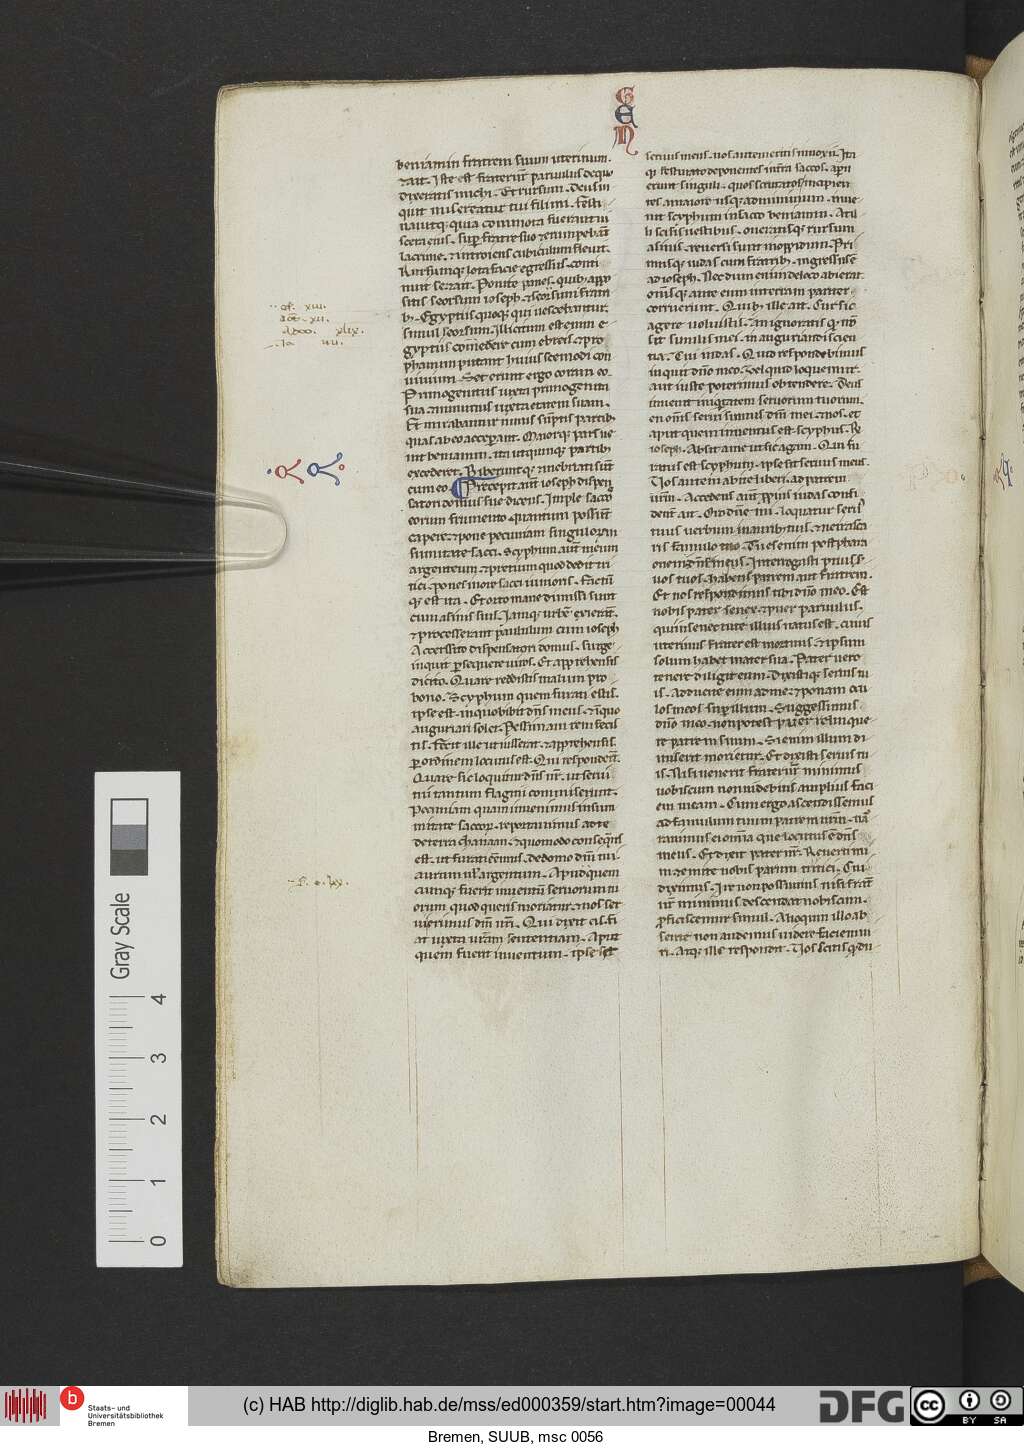 GEN
beniamin fratrem suum uterinum.
⁊ ait. Iste est frater ur̄ paruulus de quo
dixeratis michi. Et rursum. Deus in
quit misereatur tui fili mi. Festi
nauitq; quia commota fuerant ui
scera eius. sup̄ fratre suo ⁊ erumpebāt
lacrime. ⁊ introiens cubiculum fleuit.
Rursumq; lota facie egressus. conti
nuit se ⁊ ait. Ponite panes. quib; appo
sitis seorsum ioseph ⁊ seorsum fratri
b; Egyptiis quoq; qui uescebantur
simul seorsum. Illicitum est enim e
gyptiis com̄edere cum ebreis. ⁊ pro
phanum putant huiuscemodi con
uiuium. Sederunt ergo coram eo.
Primogenitus iuxta primogenita
sua. ⁊ minimus iuxta etatem suam.
Et mirabantur nimis sumptis partib;
quas ab eo acceperant. Maiorq; pars ue
nit beniamin. ita ut quinq; partib;
excederet. Biberuntq; ⁊ inebriati sūt
cum eo. Precepit aūt ioseph dispen
satori domus sue dicens. Imple saccos
eorum frumento. quantum possunt
capere. ⁊ pone pecuniam singulorum
summitate sacci. Scyphum aūt meum
argenteum. ⁊ pretium quod dedit tri
tici. pone in ore sacci iunioris. Factū
q; est ita. Et orto mane dimissi sunt
cum asinis suis. Iamq; urbē exierāt.
⁊ processerant paululum. cum ioseph
Accersito dispensatori domus. surge
inquit. p̄sequere uiros. Et apprehensis
dicito. Quare reddistis malum pro
bono. Scyphum quem furati estis.
ipse est. in quo bibit dn̄s meus. ⁊ in quo
augurari solet. Pessimam rem fecis
tis. Fecit ille ut iusserat. ⁊ apprehensis.
p̄ ordinem locutus est. Qui responderūt.
Quare sic loquitur dn̄s nr̄. ut serui
tui tantum flagitii commiserint.
Pecuniam quam inuenimus in sum
mitate saccor. reportauimus ad te
de terra chanaan. ⁊ quomodo consequēs
est. ut furati ēimus. de domo dn̄i tui
aurum ul̄ argentum. Apud quem
cunq; fuerit inuentū seruorum tu
orum quod queris moriatur. ⁊ nos ser
ui erimus dn̄i nr̄i. Qui dixit eis. Fi
at iuxta ur̄am sententiam. Apud
quem fuerit inuentum. ipse sit
seruus meus. uos autem eritis innoxii. Ita
q; festinato deponentes in terra saccos. ap̄eru
erunt singuli. quos scrutatus incipien
tes a maiore usq; ad minimum. inue
nit scyphum in sacco beniamin. At il
li scissis uestibus. oneratisq; rursum
asinis. reuersi sunt in oppidum. Pri
musq; iudas cum fratrib; ingressus ē
ad ioseph. Nec dum enim de loco abierat.
om̄sq; ante eum in terram pariter
corruerunt. Quib; ille ait. Cur sic
agere uoluistis. An ignoratis q; nō
sit similis mei. in augurandi scien
tia. Cui iudas. Quid respondebimus
inquit dn̄o meo. Vel quid loquemur.
aut iuste poterimus obtendere. Deus
inuenit iniq̄tatem seruorum tuorum.
en om̄s serui sumus dn̄i mei. ⁊ nos. et
apud quem inuentus est scyphus. R̄
ioseph. Absit a me ut sic agam. Qui fu
ratus est scyphum. ipse sit seruus meus.
Uos autem abite liberi. ad patrem
ur̄m. Accedens aūt p̄pius iudas confi
dent̄ ait. Oro dn̄e mi. loquatur seru'
tuus uerbum in auribus tuis. ⁊ ne irasca
ris famulo tuo. Tu es enim post phara
onem dn̄s meus. Interrogasti prius s
uos tuos. habetis patrem aut fratrem.
Et nos respondimus tibi dn̄o meo. Est
nobis pater senex. ⁊ puer paruulus.
qui in senectute illius natus est. cuius
uterinus frater est mortuus. ⁊ ipsum
solum habet mater sua. Pater uero
tenere diligit eum. Dixistiq; seruis tu
is. Adducite eum ad me. ⁊ ponam ocu
los meos sup̄ illum. Suggessimus
dn̄o meo. non potest puer relinque
re patrem suum. Si enim illum di
miserit morietur. Et dixisti seruis tu
is. Nisi uenerit frater ur̄ minimus
uobiscum non uidebitis amplius faci
em meam. Cum ergo ascendissemus
ad famulum tuum patrem nr̄m. nar̄
rauimus ei omnia que locutus ē dn̄s
meus. Et dixit pater nr̄. Reuertimi
ni. ⁊ emite nobis parum tritici. Cui
diximus. Ire non possumus. nisi frat̄
nr̄ minimus descendat nobiscum.
p̄ficiscemur simul. Alioquin illo ab
sente non audemus uidere faciem ui
ri. Atq; ille respondit. Uos scitis qd du
Gray Scale
4
3
2
1
0
b
Staats- und
Universitätsbibliothek
Bremen
(c) HAB http://diglib.hab.de/mss/ed000359/start.htm?image=00044
DFG
cc BY SA
Bremen, SUUB, msc 0056